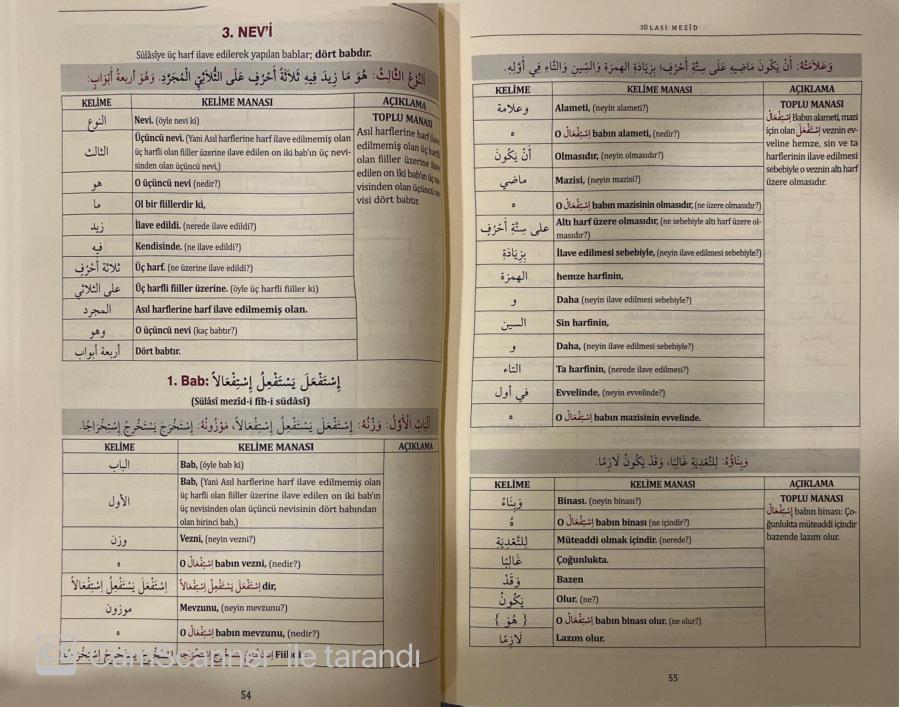 3. NEV'İ
Sülâsîye üç harf ilave edilerek yapılan bablar; dört babdır.
اَلنَّوْعُ الثَّالِثُ: هُوَ مَا زِيدَ فِيهِ ثَلَاثَةُ أَحْرُفٍ عَلَى الثُّلَاثِيِّ الْمُجَرَّدِ. وَهُوَ أَرْبَعَةُ أَبْوَابٍ:
KELİME KELİME MANASI AÇIKLAMA
النوع Nevi. (öyle nevi ki)
الثالث Üçüncü nevi. (Yani Asıl harflerine harf ilave edilmemiş olan
üç harfli olan fiiller üzerine ilave edilen on iki bab'ın üç nevi-
sinden olan üçüncü nevi,)
هو O üçüncü nevi (nedir?)
ما Ol bir fiillerdir ki,
زيد İlave edildi. (nerede ilave edildi?)
فيه Kendisinde. (ne ilave edildi?)
ثلاثة أحْرُفٍ Üç harf. (ne üzerine ilave edildi?)
على الثلاثي Üç harfli fiiller üzerine. (öyle üç harfli fiiller ki)
المجرد Asıl harflerine harf ilave edilmemiş olan.
وهو O üçüncü nevi (kaç babtır?)
أربعة أبواب Dört babtır.
TOPLU MANASI
Asıl harflerine harf ilave
edilmemiş olan üç harfli
olan fiiller üzerine ilave
edilen on iki bab'ın üç ne-
visinden olan üçüncü ne-
visi dört babtır.
1. Bab: إِسْتَفْعَلَ يَسْتَفْعِلُ إِسْتِفْعَالاً
(Sülâsî mezîd-i fih-i südâsî)
اَلْبَابُ الْأَوَّلُ: وَزْنُهُ: إِسْتَفْعَلَ يَسْتَفْعِلُ إِسْتِفْعَالاً، مَوْزُونُهُ: إِسْتَخْرَجَ يَسْتَخْرِجُ إِسْتِخْرَاجًا.
KELİME KELİME MANASI AÇIKLAMA
الباب Bab, (öyle bab ki)
الأول Bab, (Yani Asıl harflerine harf ilave edilmemiş olan
üç harfli olan fiiller üzerine ilave edilen on iki bab'ın
üç nevisinden olan üçüncü nevisinin dört babından
olan birinci bab,)
وزن Vezni, (neyin vezni?)
ه O إِسْتِفْعَالْ babın vezni, (nedir?)
إِسْتَفْعَلَ يَسْتَفْعِلُ إِسْتِفْعَالاً إِسْتَفْعَلَ يَسْتَفْعِلُ إِسْتِفْعَالاً dir,
موزون Mevzunu, (neyin mevzunu?)
ه O إِسْتِفْعَالْ babın mevzunu, (nedir?)
CS CamScanner ile tarandı
54
SÜLASİ MEZÎD
وَعَلَامَتُهُ: أَنْ يَكُونَ مَاضِيهِ عَلَى سِتَّةِ أَحْرُفٍ؛ بِزِيَادَةِ الهمزة وَالسِّينِ وَالتَّاءِ فِي أَوَّلِهِ.
KELİME KELİME MANASI AÇIKLAMA
وعلامة Alameti, (neyin alameti?)
ه O إِسْتِفْعَالْ babın alameti, (nedir?)
أَنْ يَكُونَ Olmasıdır, (neyin olmasıdır?)
ماضي Mazisi, (neyin mazisi?)
ه O إِسْتِفْعَالْ babın mazisinin olmasıdır, (ne üzere olmasıdır?)
على سِتَّةِ أَحْرُفٍ Altı harf üzere olmasıdır, (ne sebebiyle altı harf üzere ol-
masıdır?)
بِزِيَادَةِ İlave edilmesi sebebiyle, (neyin ilave edilmesi sebebiyle?)
الهمزة hemze harfinin,
و Daha (neyin ilave edilmesi sebebiyle?)
السين Sin harfinin,
و Daha, (neyin ilave edilmesi sebebiyle?)
التاء Ta harfinin, (nerede ilave edilmesi?)
في أول Evvelinde, (neyin evvelinde?)
ه O إِسْتِفْعَالْ babın mazisinin evvelinde.
TOPLU MANASI
إِسْتِفْعَالْ Babın alameti, mazi
için olan إِسْتَفْعَلَ veznin ev-
veline hemze, sin ve ta
harflerinin ilave edilmesi
sebebiyle o veznin altı harf
üzere olmasıdır.
وَبِنَاؤُهُ: لِلتَّعْدِيَةِ غَالِبًا، وَقَدْ يَكُونُ لَازِمًا.
KELİME KELİME MANASI AÇIKLAMA
وَبِنَاءُ Binası. (neyin binası?)
هُ O إِسْتِفْعَالْ babın binası (ne içindir?)
لِلتَّعْدِيَةِ Müteaddi olmak içindir. (nerede?)
غَالِبًا Çoğunlukta.
وَقَدْ Bazen
يَكُونُ Olur. (ne?)
{ هُوَ } O إِسْتِفْعَالْ babın binası olur. (ne olur?)
لَازِمًا Lazım olur.
TOPLU MANASI
إِسْتِفْعَالْ babın binası: Ço-
ğunlukta müteaddi içindir
bazende lazım olur.
55